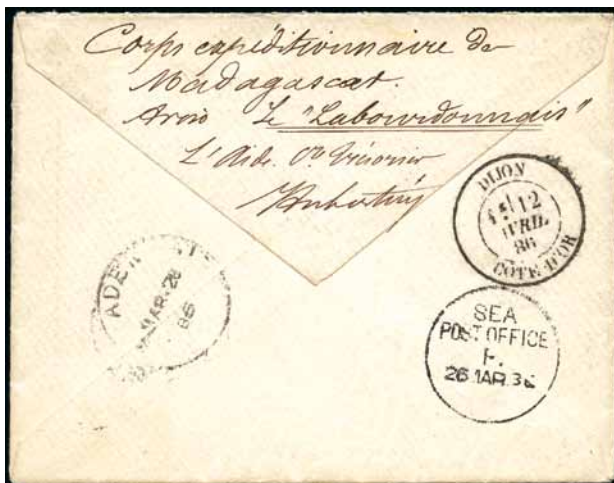 Corps expéditionnaire de
Madagascar.
Aviso Le "Labourdonnais"
L'Aide
DIJON
12
AVRIL
86
COTE-D'OR
ADEN
MAR. 28
86
SEA
POST OFFICE
F.
26 MAR. 86